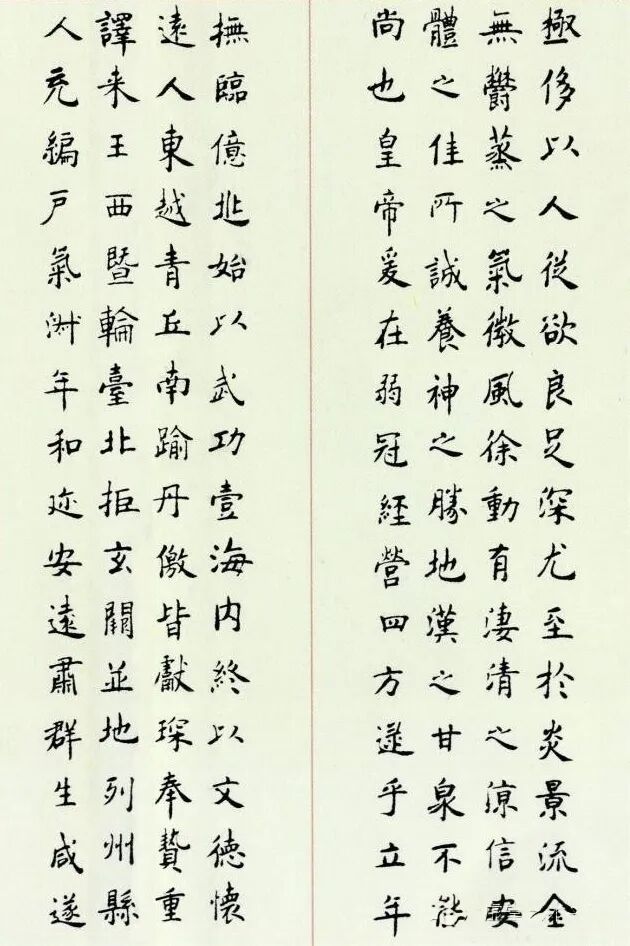 極侈以人從欲良足深尤至於炎景流金
無鬱蒸之氣微風徐動有淒清之涼信安
體之佳所誠養神之勝地漢之甘泉不能
尚也皇帝爰在弱冠經營四方逮乎立年
撫臨億兆始以武功壹海内終以文德懷
遠人東越青丘南踰丹儌皆獻琛奉贄重
譯来王西暨輪臺北拒玄闕並地列州縣
人充編戶氣淑年和迩安遠肅群生咸遂